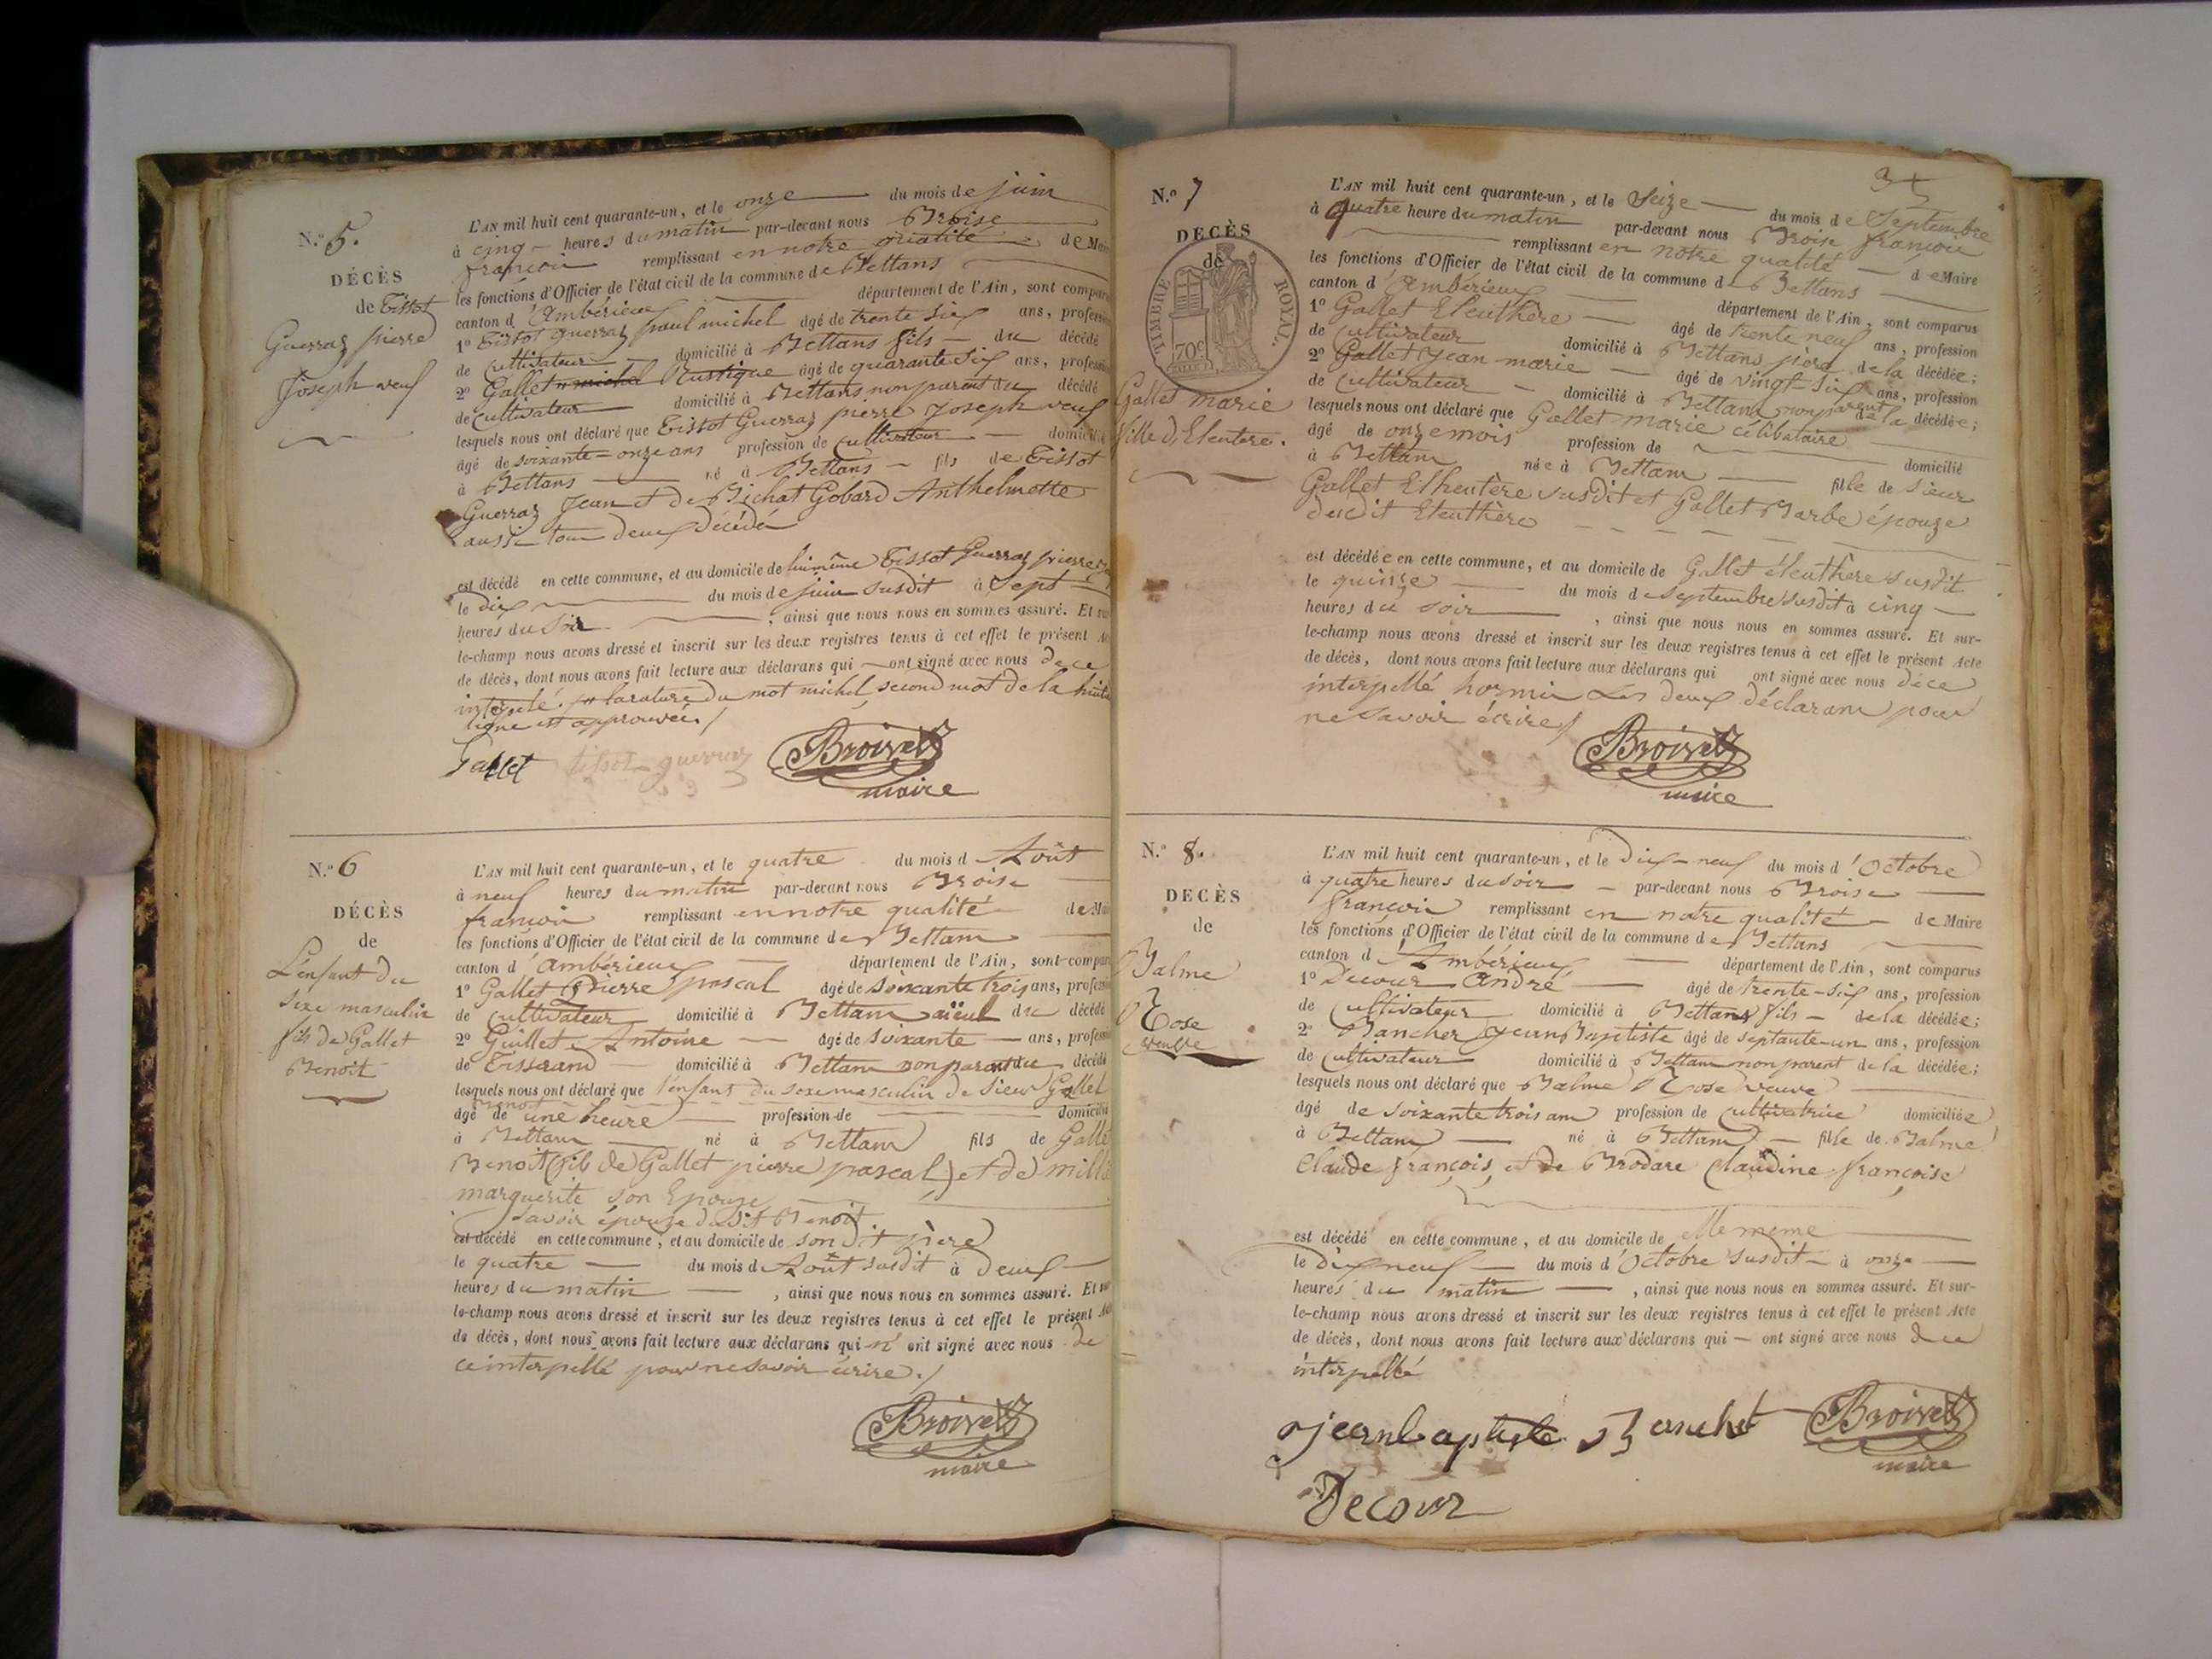 N.o 5.
DÉCÈS
de Tissot
Guerraz pierre
Joseph veuf
L'AN mil huit cent quarante-un, et le onze du mois de juin
à cinq heures du matin par-devant nous Broise
françois remplissant en notre qualité de Mai
les fonctions d'Officier de l'état civil de la commune de Bettans
canton d'Ambérieux département de l'Ain, sont compar
1o Tissot Guerraz paul michel âgé de trente six ans, profess
de Cultivateur domicilié à Bettans fils du décédé
2o Gallet michel Rustique âgé de quarante six ans, profess
de Cultivateur domicilié à Bettans non parent du décédé
lesquels nous ont déclaré que Tissot Guerraz pierre Joseph veuf
âgé de soixante-onze ans profession de Cultivateur domicilié
à Bettans né à Bettans fils de Tissot
Guerraz Jean et de Michat Gobard Anthelmette
aussi tous deux décédé
est décédé en cette commune, et au domicile de lui même Tissot Guerraz pierre
le dix du mois de juin susdit à Sept
heures du soir, ainsi que nous nous en sommes assuré. Et sur
le-champ nous avons dressé et inscrit sur les deux registres tenus à cet effet le présent Ac
de décès, dont nous avons fait lecture aux déclarans qui ont signé avec nous de ce
interpelé. la rature du mot michel, second mot de la huit
ligne est approuvée./
Gallet tissot guerraz Broise
maire
N.o 6
DÉCÈS
de
L'enfant du
sexe masculin
fils de Gallet
Benoit
L'AN mil huit cent quarante-un, et le quatre du mois d'Août
à neuf heures du matin par-devant nous Broise
françois remplissant en notre qualité de Mai
les fonctions d'Officier de l'état civil de la commune de Bettans
canton d'Ambérieux département de l'Ain, sont compar
1o Gallet Pierre pascal âgé de soixante trois ans, profess
de Cultivateur domicilié à Bettans aïeul du décédé
2o Guillet Antoine âgé de soixante ans, profess
de Tisserand domicilié à Bettans non parent du décédé
lesquels nous ont déclaré que l'enfant du sexe masculin de Sieur Gallet
Benoit
âgé de une heure profession de domicilié
à Bettans né à Bettans fils de Galle
Benoit (fils de Gallet pierre pascal) et de milli
marguerite son Epouse
savoir épouse dudit Benoit
est décédé en cette commune, et au domicile de son dit père
le quatre du mois d'Août susdit à deux
heures du matin, ainsi que nous nous en sommes assuré. Et sur
le-champ nous avons dressé et inscrit sur les deux registres tenus à cet effet le présent Ac
de décès, dont nous avons fait lecture aux déclarans qui n'ont signé avec nous de
ce interpellé pour ne savoir écrire./
Broise
maire
35
N.o 7
DECÈS
de
TIMBRE ROYAL.
70c
Gallet marie
fille d'Eleutère.
L'AN mil huit cent quarante-un, et le Seize du mois de Septembre
à quatre heure du matin par-devant nous Broise françois
remplissant en notre qualité de Maire
les fonctions d'Officier de l'état civil de la commune de Bettans
canton d'Ambérieux département de l'Ain, sont comparus
1o Gallet Eleuthère âgé de trente neuf ans, profession
de Cultivateur domicilié à Bettans père de la décédée;
2o Gallet Jean marie âgé de vingt-six ans, profession
de Cultivateur domicilié à Bettans non parent de la décédée;
lesquels nous ont déclaré que Gallet marie célibataire
âgé de onze mois profession de domicilié
à Bettans née à Bettans fille de sieur
Gallet Elheutère susdit et Gallet Barbe épouze
dudit Eleuthère
est décédée en cette commune, et au domicile de Gallet éleuthère susdit
le quinze du mois de septembre susdit à cinq
heures du soir, ainsi que nous nous en sommes assuré. Et sur-
le-champ nous avons dressé et inscrit sur les deux registres tenus à cet effet le présent Acte
de décès, dont nous avons fait lecture aux déclarans qui ont signé avec nous de ce
interpellé hormis les deux déclarans pour
ne savoir écrire/
Broise
maire
N.o 8.
DECÈS
de
Balme
Rose
veuve
L'AN mil huit cent quarante-un, et le dix-neuf du mois d'Octobre
à quatre heures du soir par-devant nous Broise
françois remplissant en notre qualité de Maire
les fonctions d'Officier de l'état civil de la commune de Bettans
canton d'Ambérieux département de l'Ain, sont comparus
1o Decour André âgé de trente-six ans, profession
de Cultivateur domicilié à Bettans fils de la décédée;
2o Bancher Jean Baptiste âgé de septante-un ans, profession
de Cultivateur domicilié à Bettans non parent de la décédée;
lesquels nous ont déclaré que Balme Rose veuve
âgé de soixante trois ans profession de Cultivatrice domiciliée
à Bettans né à Bettans fille de Balme
Claude françois, et de Brodare Claudine françoise
est décédé en cette commune, et au domicile de Elle meme
le dix neuf du mois d'Octobre susdit à onze
heures du matin, ainsi que nous nous en sommes assuré. Et sur-
le-champ nous avons dressé et inscrit sur les deux registres tenus à cet effet le présent Acte
de décès, dont nous avons fait lecture aux déclarans qui ont signé avec nous de ce
interpellé
jean baptiste Banchet Broise
maire
Decour